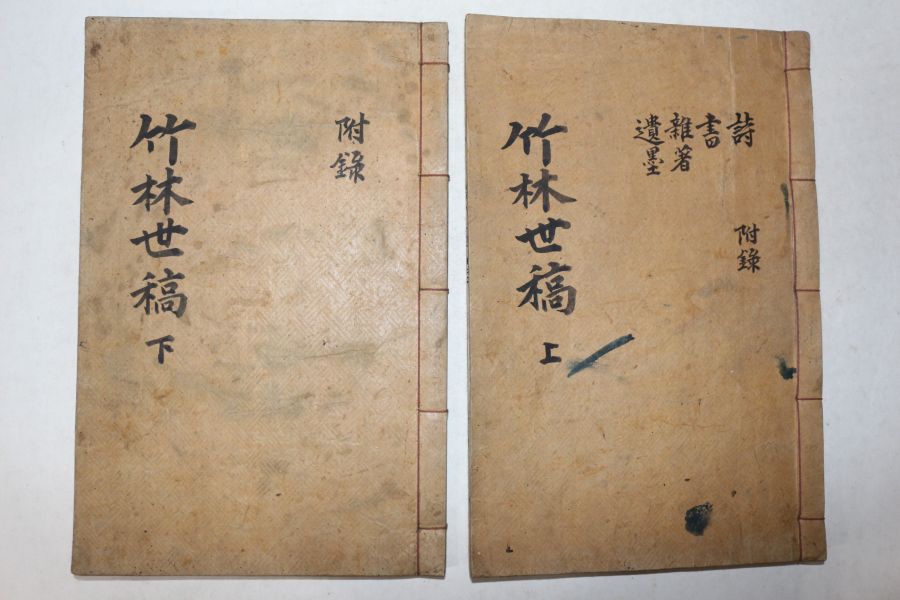 詩
書
雜著
遺墨
附錄
竹林世稿 上
附錄
竹林世稿 下